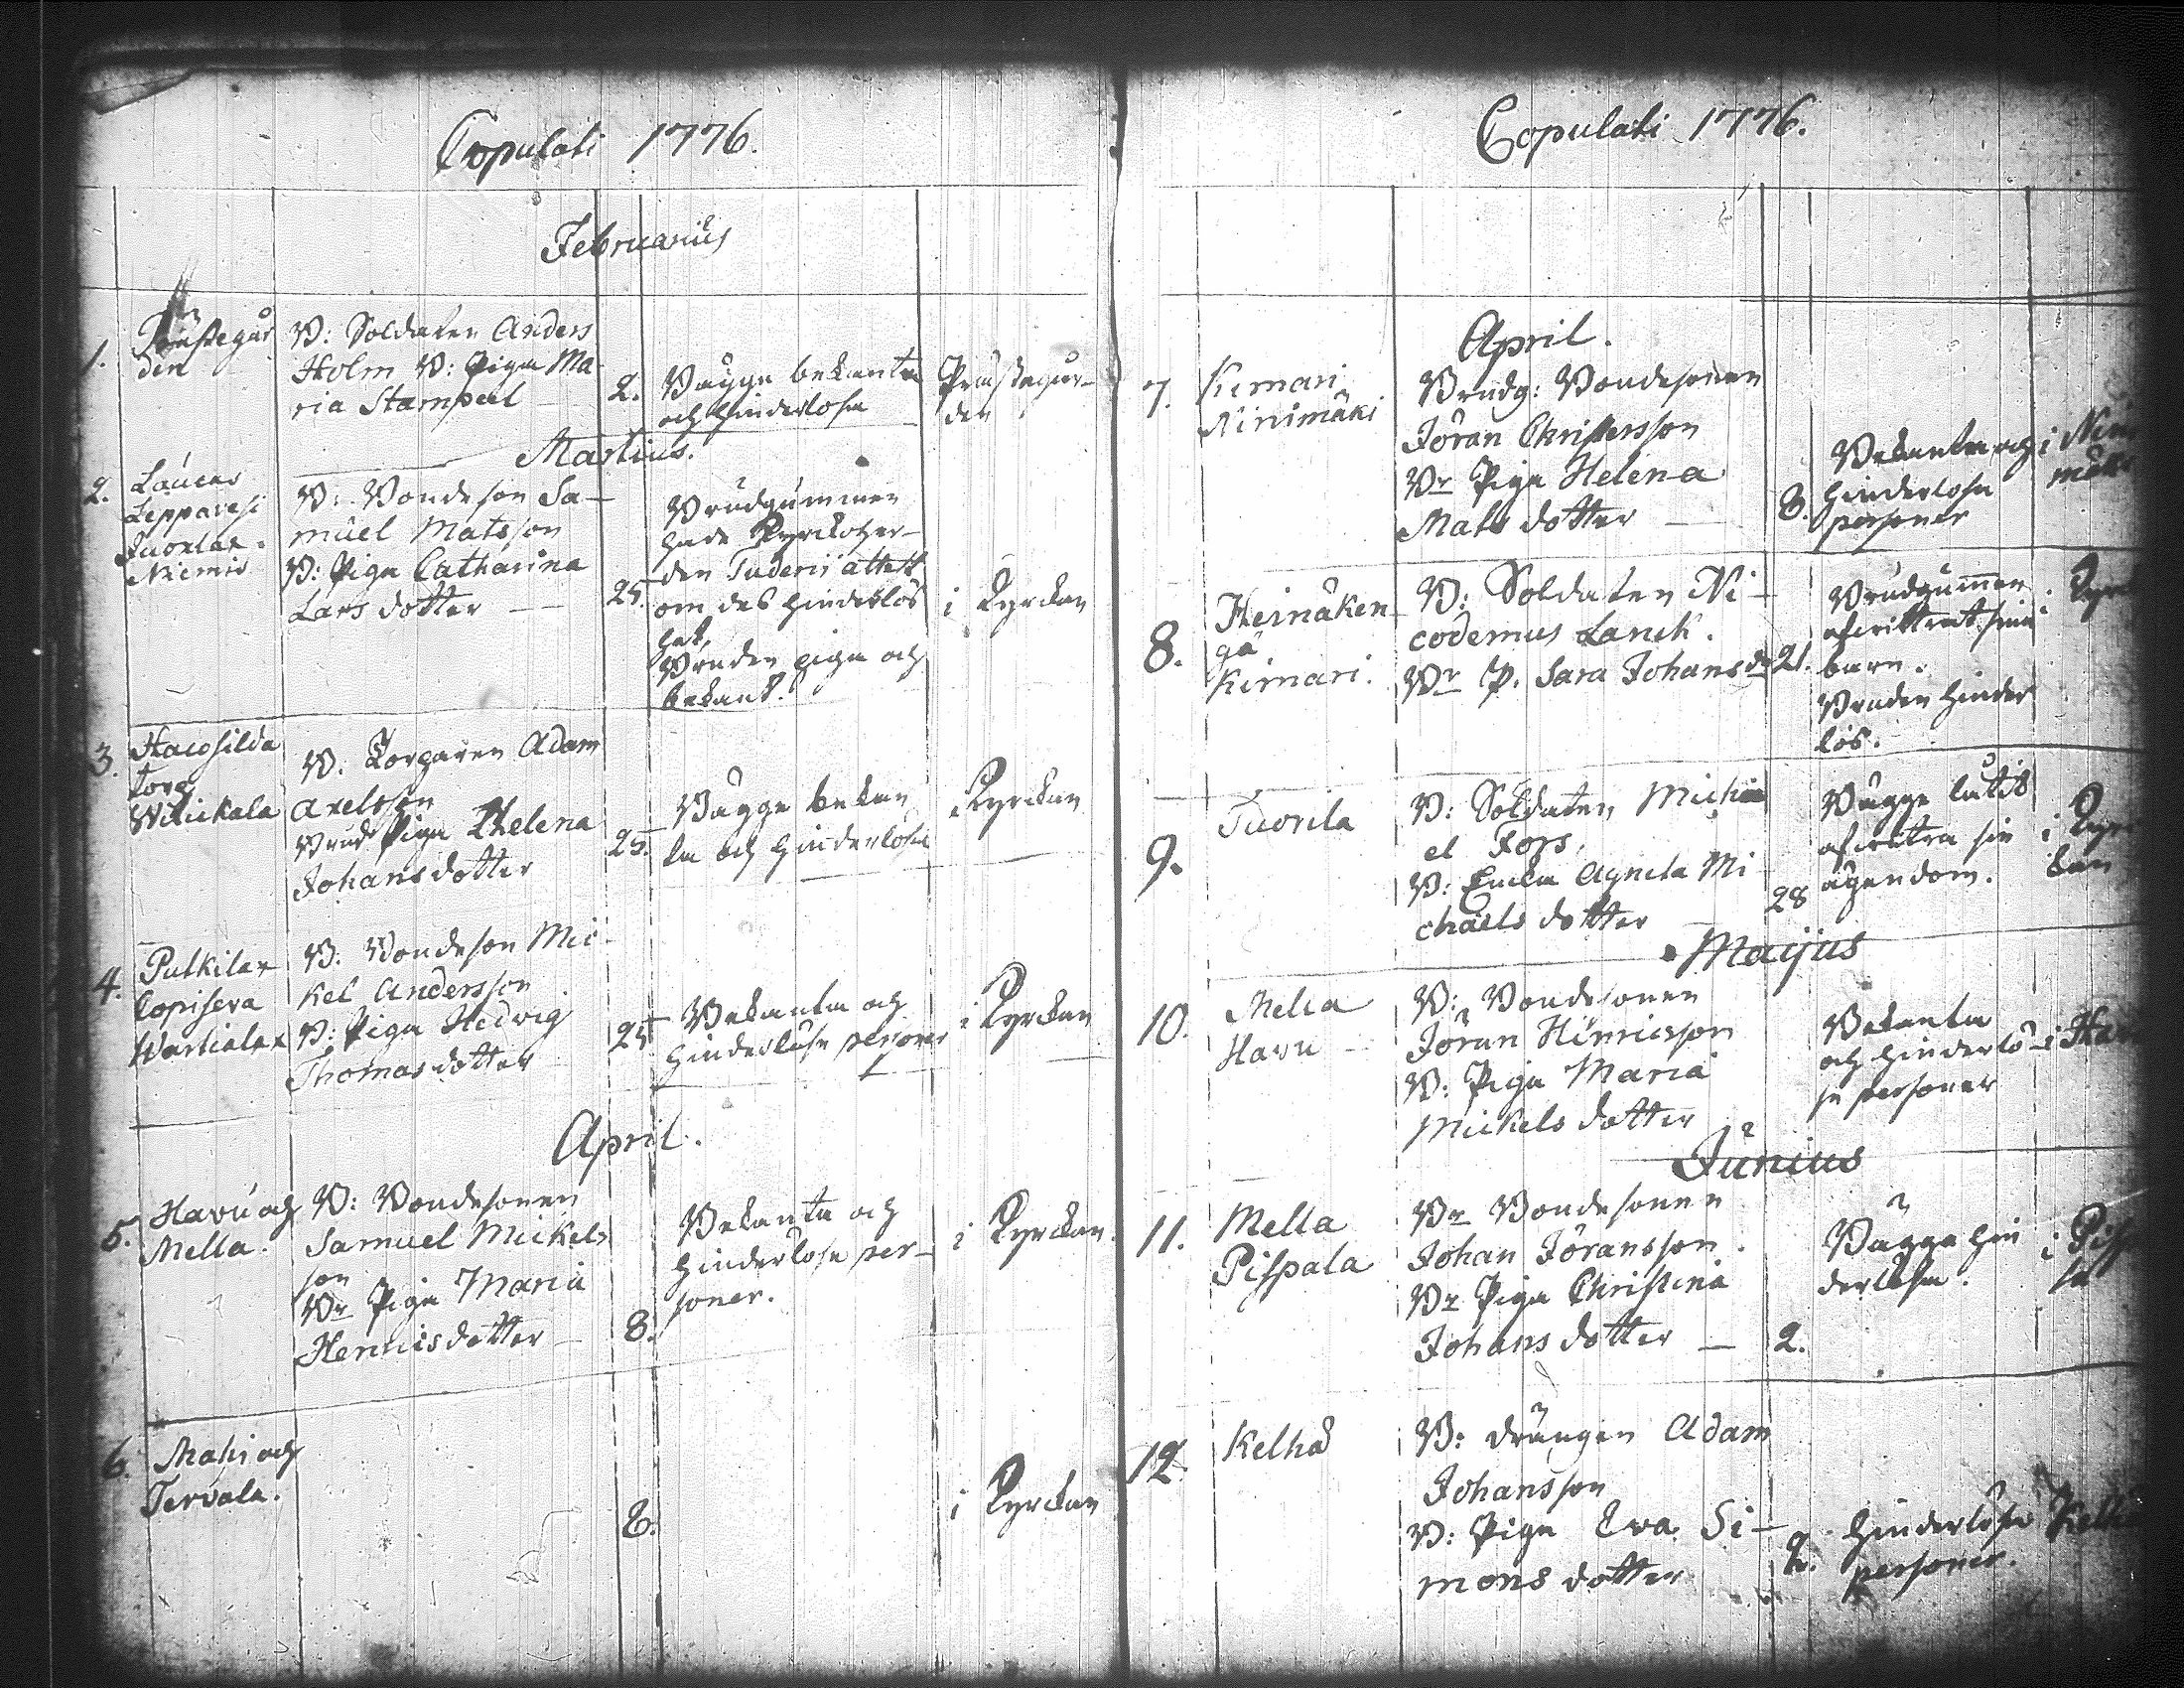 Copulati 1776.
Februarius
1.
Prästegår
den
B: Soldaten Anders
Holm B: Piga Ma
ria Stampeel
2.
Bägge bekanta
och hinderlösa
Prästegår-
den
Martius.
2.
Laucas
Leppavesi
Niemis
B: Bondeson Sa-
muel Matsson
B: Piga Catharina
Lars dotter
25.
Brudgummen
den
om des hinderlös
het,
Bruden piga och
bekant.
i Kyrckan
3.
torp
Witickala
B. Torparen Adam
Axelsson
Brud Piga Helena
Johans dotter
25.
Bägge bekan
ta och hinderlösa
i Kyrckan
4.
Putkilax
B. Bondeson Mic
kel Andersson
B: Piga Hedwig
Thomas dotter
25
Bekanta och
hinderlösa personer
i Kyrckan
April.
5.
Havu och
Mella.
B: Bondesonen
Samuel Mickels
son
Br Piga Maria
Henricsdotter
8.
Bekanta och
hinderlösa per-
soner.
i Kyrckan.
6.
Mahi och
Tervala.
8.
i Kyrckan
Copulati 1776.
April.
7.
Kimari
Ninimäki
Brudg: Bondesonen
Jöran Christersson
Br Piga Helena
Mats dotter
8.
Bekanta och
hinderlösa
personer
i Nini
mäki
8.
Heinäken
gä
Kimari.
B: Soldaten Ni-
codemus Lanck.
Br P. Sara Johans dr
21.
Brudgummen
barn.
Bruden hinder
lös.
9.
Tuorila
B: Soldaten Micha
el Fors,
B: Enkia Agneta Mi
chaels dotter
28
Bägge låtit
afvitra sin
ägendom.
i Kyrc
kan
Majus
10.
Mella
Havu
B: Bondesonen
Jöran Hinricsson
B: Piga Maria
Mickels dotter
Bekanta
och hinderlö-
sa personer
i Hav
Junius
11.
Mella
Pispala
Br Bondesonen
Johan Jöransson.
Br Piga Christina
Johans dotter
2.
Bägge hin
derlösa.
i Pisp
la
12.
Kelhä
B: drängen Adam
Johansson
B: Piga Eva Si-
mons dotter
2.
hinderlösa
personer.
Kelh